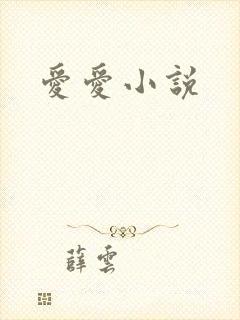 愛愛小説
薛雲